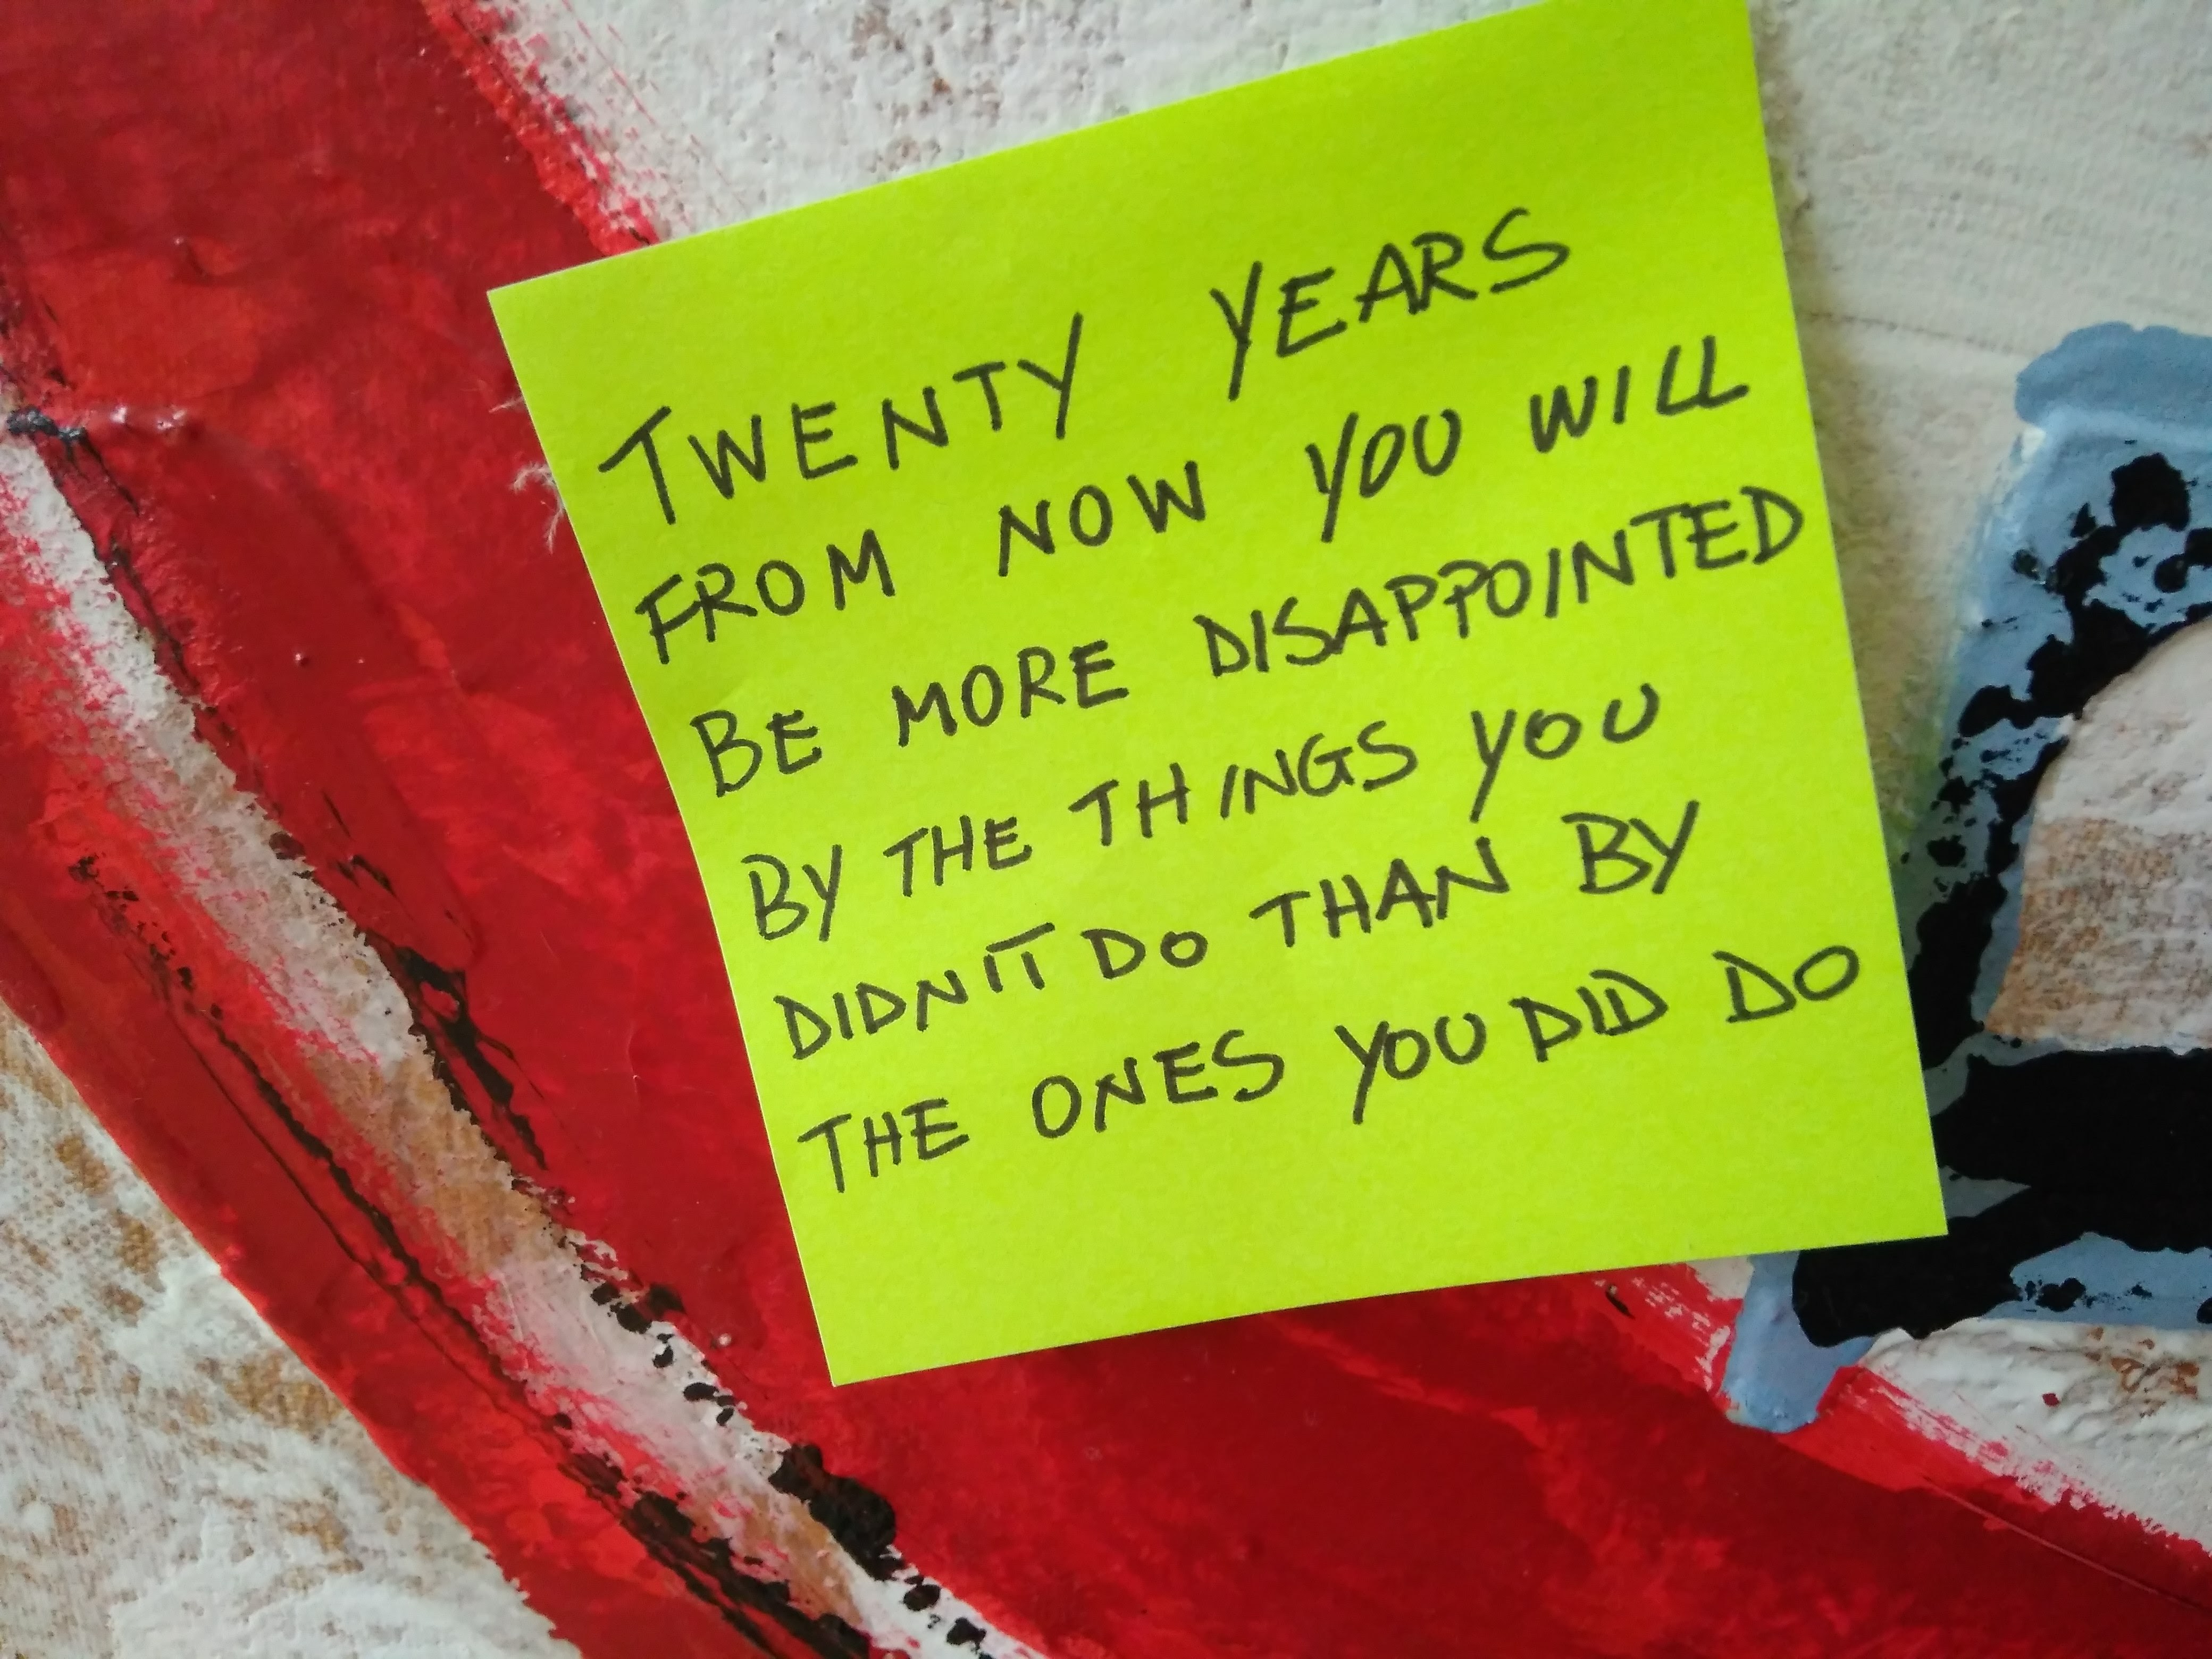 TWENTY YEARS
FROM NOW YOU WILL
BE MORE DISAPPOINTED
BY THE THINGS YOU
DIDN'T DO THAN BY
THE ONES YOU DID DO